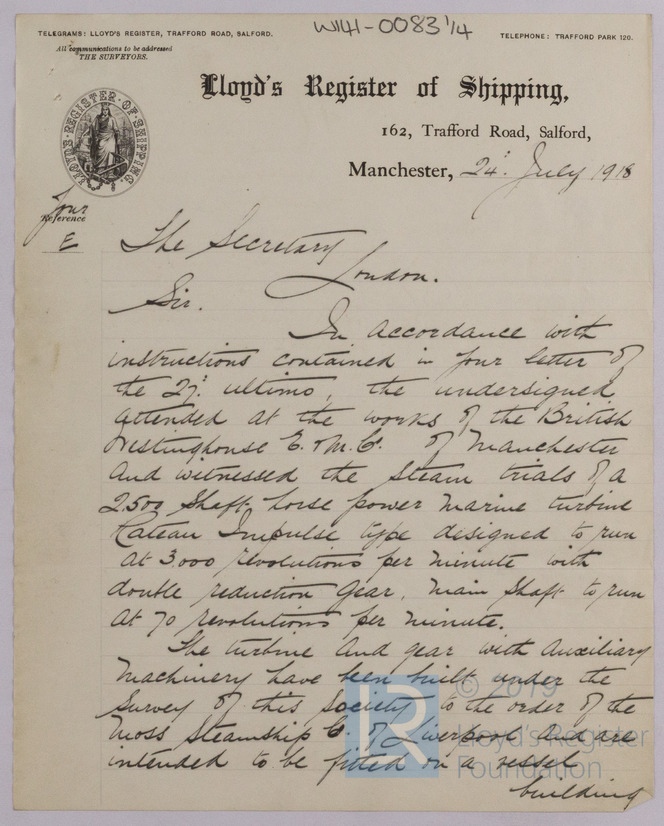 W141-0083 1/4
TELEGRAMS: LLOYD'S REGISTER, TRAFFORD ROAD, SALFORD.
TELEPHONE: TRAFFORD PARK 120.
All communications to be addressed
THE SURVEYORS.
Lloyd's Register of Shipping,
LLOYD'S REGISTER OF SHIPPING.
162, Trafford Road, Salford,
Manchester, 24th July 1918
Your
Reference
E
The Secretary
London.
Sir.
In accordance with
instructions contained in your letter of
the 27th ultimo, the undersigned
attended at the works of the British
Westinghouse E. & M. Co. of Manchester
and witnessed the steam trials of a
2500 shaft horse power marine turbine
Rateau Impulse type designed to run
at 3000 revolutions per minute with
double reduction gear, main shaft to run
at 70 revolutions per minute.
The turbine and gear with auxiliary
machinery have been built under the
survey of this Society to the order of the
Moss Steamship Co. of Liverpool and are
intended to be fitted on a vessel
building
LR
© 2019
Lloyd's Register
Foundation